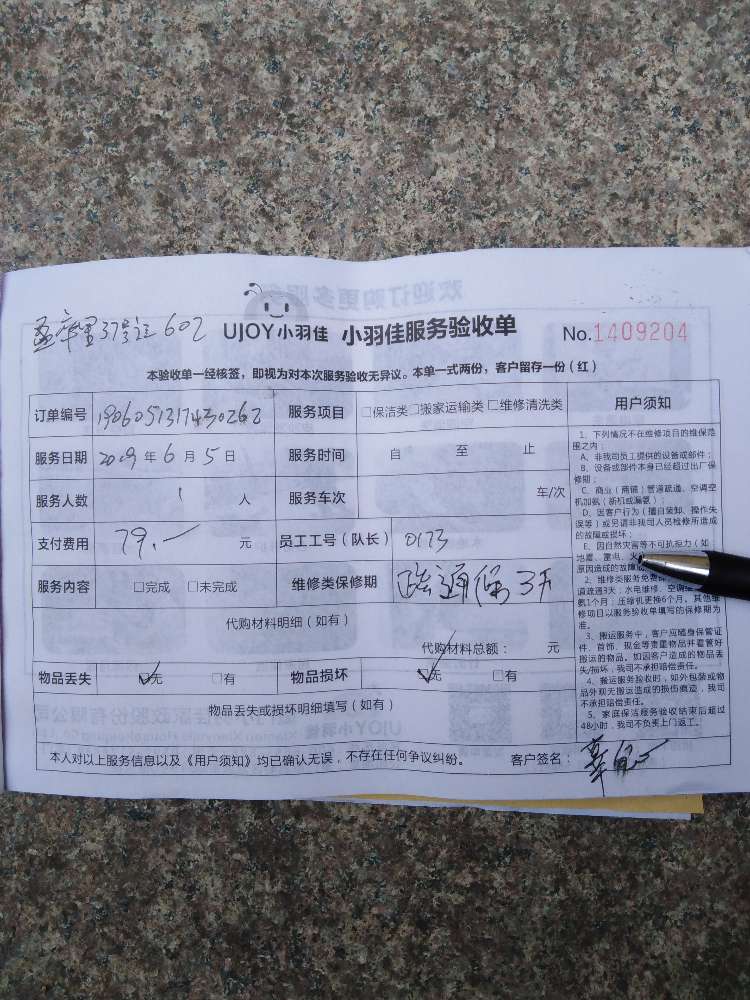 37号 602
UJOY小羽佳 小羽佳服务验收单 No.1409204
本验收单一经核签，即视为对本次服务验收无异议。本单一式两份，客户留存一份（红）
订单编号 服务项目 □保洁类□搬家运输类□维修清洗类
服务日期 2019 年 6 月 5 日 服务时间 自 至 止
服务人数 1 人 服务车次 车/次
支付费用 79.— 元 员工工号（队长） 0173
服务内容 □完成 □未完成 维修类保修期 通保3天
代购材料明细（如有）
代购材料总额： 元
物品丢失 ☑无 □有 物品损坏 ☑无 □有
物品丢失或损坏明细填写（如有）
本人对以上服务信息以及《用户须知》均已确认无误，不存在任何争议纠纷。 客户签名：
用户须知
1、下列情况不在维修项目的维保范
围之内：
A、非我司员工提供的设备或部件；
B、设备或部件本身已经超过出厂保
修期；
C、商业（商铺）管道疏通、空调空
机加氨（新机或漏氨）；
D、因客户行为（擅自装卸、操作失
误等）或另请非我司人员检修所造成
的故障或损坏；
E、因自然灾害等不可抗拒力（如
地震、雷电、
原因造成的故障
2、维修类服务免费
道疏通3天；水电维修、空调
氨1个月；压缩机更换6个月。其他维
修项目以服务验收单填写的保修期为
准。
3、搬运服务中，客户应随身保管证
件、首饰、现金等贵重物品并看管好
搬运的物品。如因客户造成的物品丢
失/损坏，我司不承担赔偿责任。
4、搬运服务验收时，如外包装或物
品外观无搬运造成的损伤痕迹，我司
不承担赔偿责任。
5、家庭保洁服务验收结束后超过
48小时，我司不负责上门返工。
欢迎订购更多服务